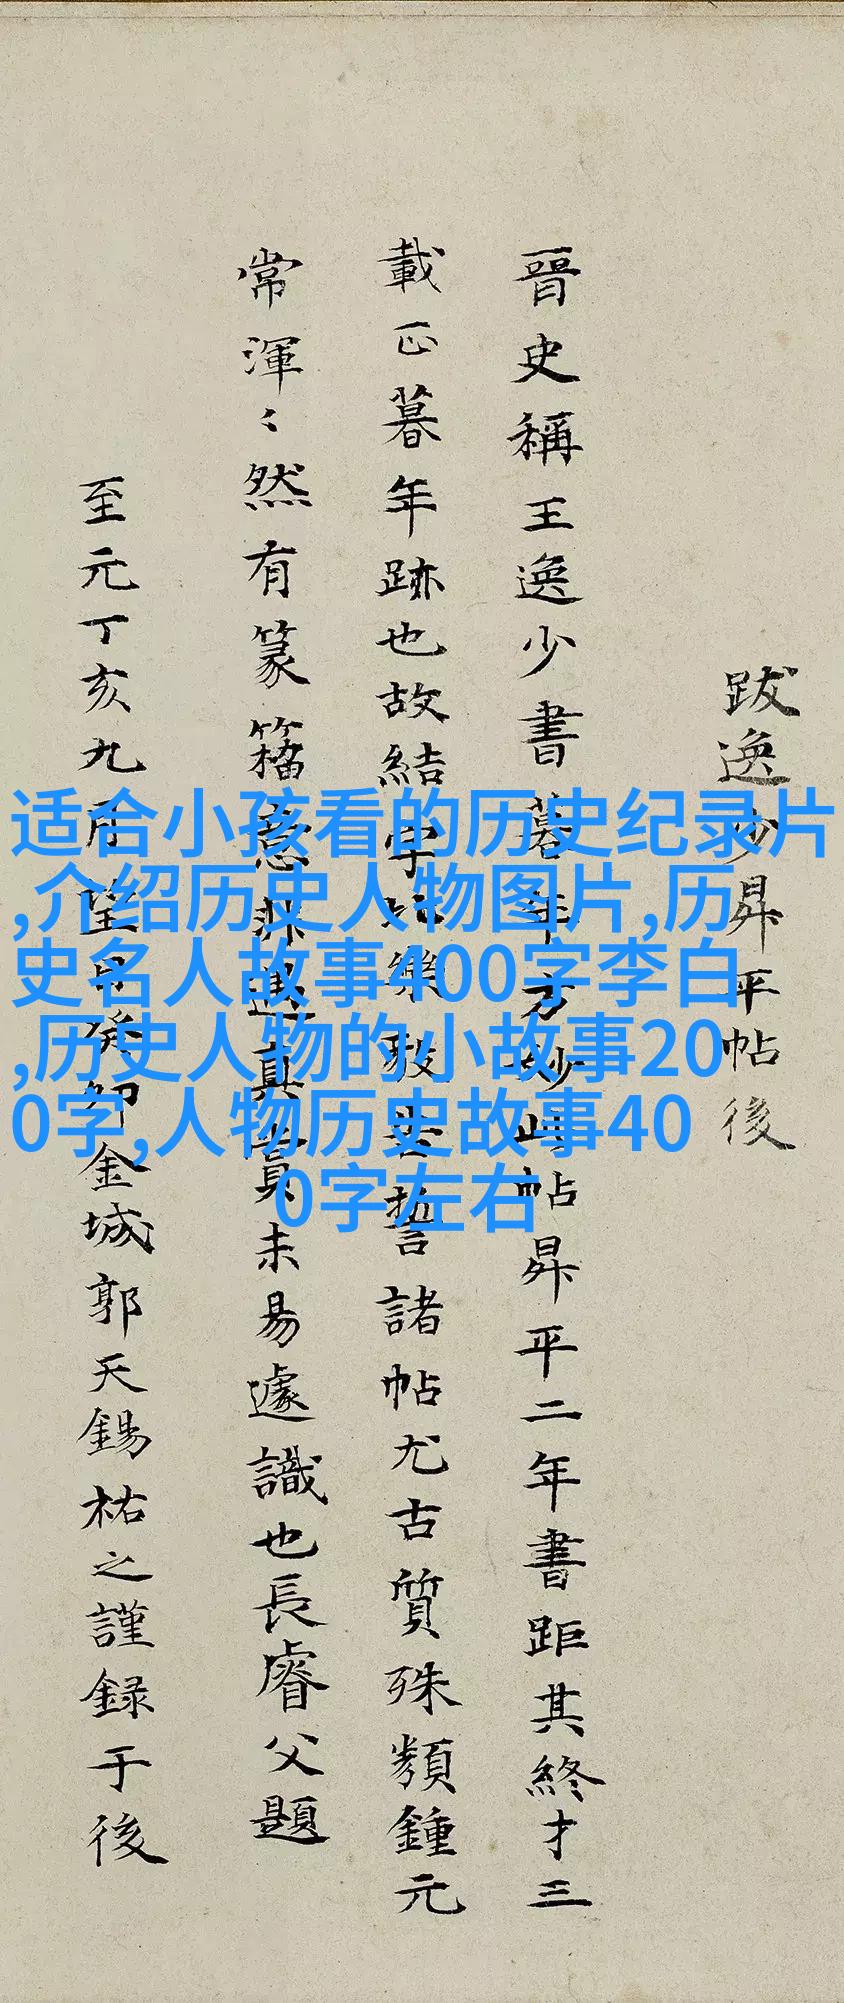 跋逸少昇平帖後
晉史稱王逸少書暮年方妙此帖昇平二年書距其終才三
載正暮年跡也故結字比樂毅告誓諸帖尤古質殊類鍾元
常渾〻然有篆籀意非遇真賞未易遽識也長睿父題
至元丁亥九月望日癸卯金城郭天錫祐之謹録于後
适合小孩看的历史纪录片
,介绍历史人物图片,历
史名人故事400字李白
,历史人物的小故事20
0字,人物历史故事40
0字左右